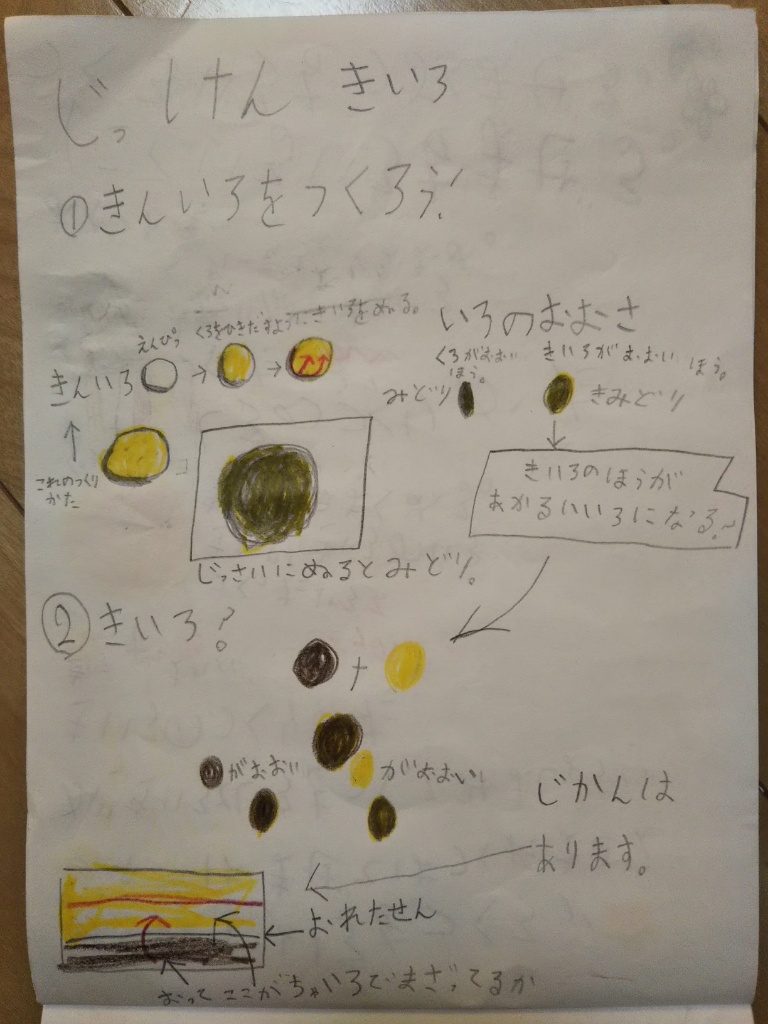 じっけん きいろ
①きんいろをつくろう!
えんぴつ
くろをひきだすようにきいろをぬる。
きんいろ → →
これのつくりかた
じっさいにぬるとみどり。
いろのおおさ
くろがおおいほう。
きいろがおおいほう。
みどり
きみどり
きいろのほうが
あかるいいろになる!~
②きいろ?
+
がおおい
がおおい
じかんは
あります。
おれたせん
おって ここがちゃいろでまざってるか